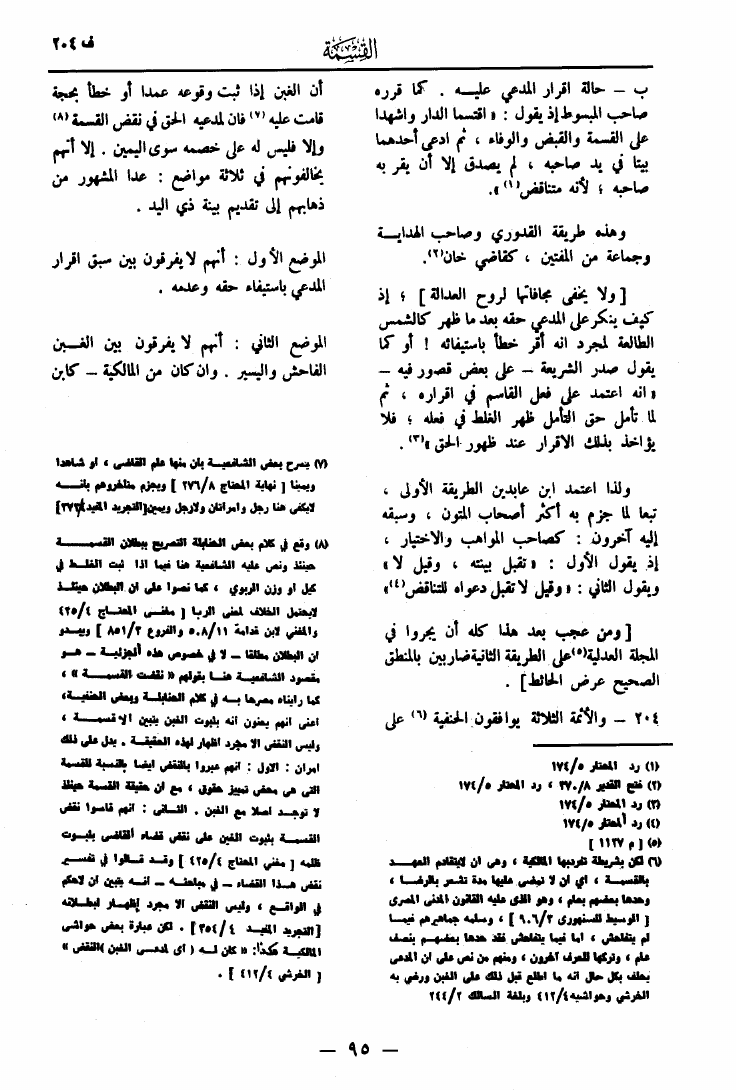 ف ٢٠٤
القِسْمَة
ب — حالة اقرار المدعي عليــه . كما قرره
صاحب المبسوط إذ يقول : « اقتسما الدار واشهدا
على القسمة والقبض والوفاء ، ثم ادعى أحدهما
بيتا في يد صاحبه ، لم يصدق إلا أن يقر به
صاحبه ؛ لأنه متناقض (١) ».
وهذه طريقة القدوري وصاحب الهدايــة
وجماعة من المفتين ، كقاضي خان (٢).
[ ولا يخفى مجافاتها لروح العدالة ] ؛ إذ
كيف ينكر على المدعي حقه بعد ما ظهر كالشمس
الطالعة لمجرد انه أقر خطأ باستيفائه ! أو كما
يقول صدر الشريعة — على بعض قصور فيه —
« انه اعتمد على فعل القاسم في اقراره ، ثم
لما تأمل حق التأمل ظهر الغلط في فعله ؛ فلا
يؤاخذ بذلك الاقرار عند ظهور الحق » (٣) .
ولذا اعتمد ابن عابدين الطريقة الأولى ،
تبعا لما جزم به أكثر أصحاب المتون ، وسبقه
إليه آخرون : كصاحب المواهب والاختيار ،
إذ يقول الأول : « تقبل بينته ، وقيل لا »
ويقول الثاني : « وقيل لا تقبل دعواه للتناقض (٤) »
[ ومن عجب بعد هذا كله أن يجروا في
المجلة العدلية (٥) على الطريقة الثانية ضاربين بالمنطق
الصحيح عرض الحائط ] .
٢٠٤ — والأئمة الثلاثة يوافقون الحنفية (٦) على
(١) رد المحتار ١٧٤/٥
(٢) فتح القدير ٣٧٠/٨ ، رد المحتار ١٧٤/٥
(٣) رد المحتار ١٧٤/٥
(٤) رد المحتار ١٧٤/٥
(٥) [ م ١١٢٧ ]
(٦) لكن بشريطة تفردبها المالكية ، وهي ان لايتقادم العهــد
بالقسمــة ، أي ان لا تمضى عليها مدة تشعر بالرضــا ،
وحدها بعضهم بعام ، وهو الذى عليه القانون المدنى المصرى
[ الوسيط للسنهورى ٩٠٦/٢ ] ، وسلمه جماهيرهم فيمــا
لم يتفاحش ، اما فيما يتفاحش فقد حدها بعضهــم بنصف
عام ، وتركها للعرف آخرون ، ومنهم من نص على ان المدعي
يحلف بكل حال انه ما اطلع قبل ذلك على الغبن ورضي به
الخرشي وحواشيه ٤١٢/٤ وبلغة السالك ٢٤٤/٢
أن الغبن إذا ثبت وقوعه عمدا أو خطأ بحجة
قامت عليه (٧) فان لمدعيه الحق في نقض القسمة (٨)
وإلا فليس له على خصمه سوى اليمين . إلا أنهم
يخالفونهم في ثلاثة مواضع : عدا المشهور من
ذهابهم إلى تقديم بينة ذي اليد .
الموضع الأول : أنهم لا يفرقون بين سبق اقرار
المدعي باستيفاء حقه وعدمه .
الموضع الثاني : أنهم لا يفرقون بين الغــبن
الفاحش واليسير . وان كان من المالكية — كابن
(٧) يصرح بعض الشافعيــة بان منها علم القاضى ، او شاهدا
ويمينا [ نهاية المحتاج ٢٧٦/٨ ] ويجزم متأخروهم بانــه
لايكفى هنا رجل وامراتان ولارجل ويمين [التجريد المفيد
(٨) وقع في كلام بعض الحنابلة التصريح ببطلان القسمــة
حينئذ ونص عليه الشافعيــة هنا فيما اذا ثبت الغلــط في
كيل او وزن الربوي ، كما نصوا على ان البطلان حينئــذ
لايحتمل الخلاف لمعنى الربا [ مغنــى المحتــاج ٤٢٥/٤
والمغني لابن قدامة ٥٠٨/١١ والفروع ٨٥١/٣ ] ويبــدو
ان البطلان مطلقا — لا في خصوص هذه الجزئيــة — هــو
مقصود الشافعيــة هنــا بقولهم « نقضت القسمــة » ،
كما رايناه مصرحا بــه في كلام الحنابلــة وبعض الحنفيــة،
اعنى انهم يعنون انه بثبوت الغبن يتبين الا قسمــة ،
وليس النقض الا مجرد اظهار لهذه الحقيقــة . يدل على ذلك
امران : الاول : انهم عبروا بالنقض ايضا بالنسبة للقسمة
التى هى محض تمييز حقوق ، مع ان حقيقة القسمة حينئذ
لا توجــد اصلا مع الغبن . الثــانى : انهم قاسوا نقض
القسمــة بثبوت الغبن على نقض قضاء القاضى بثبــوت
ظلمه [ مغني المحتاج ٤٢٥/٤ ] وقــد قــالوا في تفسيــر
نقض هــذا القضاء — في مباحثــه — انــه يتبين ان لاحكم
في الواقــع ، وليس النقض الا مجرد إظهــار لبطلانــه
[التجريد المفيــد ٣٥٤/٤ ] . لكن عبارة بعض حواشي
المالكية هكذا: « كان لــه ( أى لمدعــى الغبن )النقض »
[ الخرشي ٤١٢/٤ ] .
— ٩٥ —